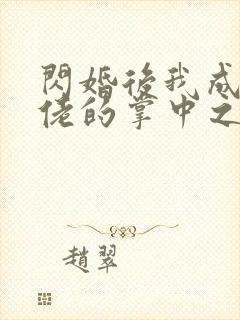 閃婚後我成
佬的掌中之
趙翠